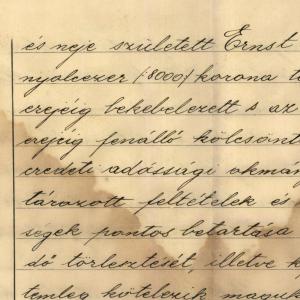 és neje született Ernst
nyolcezer (8000) korona t
erejéig bekebelezett s az
erejéig fenálló kölcsönt
eredeti adóssági okmán
tározott feltételek és
ségek pontos betartása
dő törlesztését, illetve k
temleg kötelezik maguk